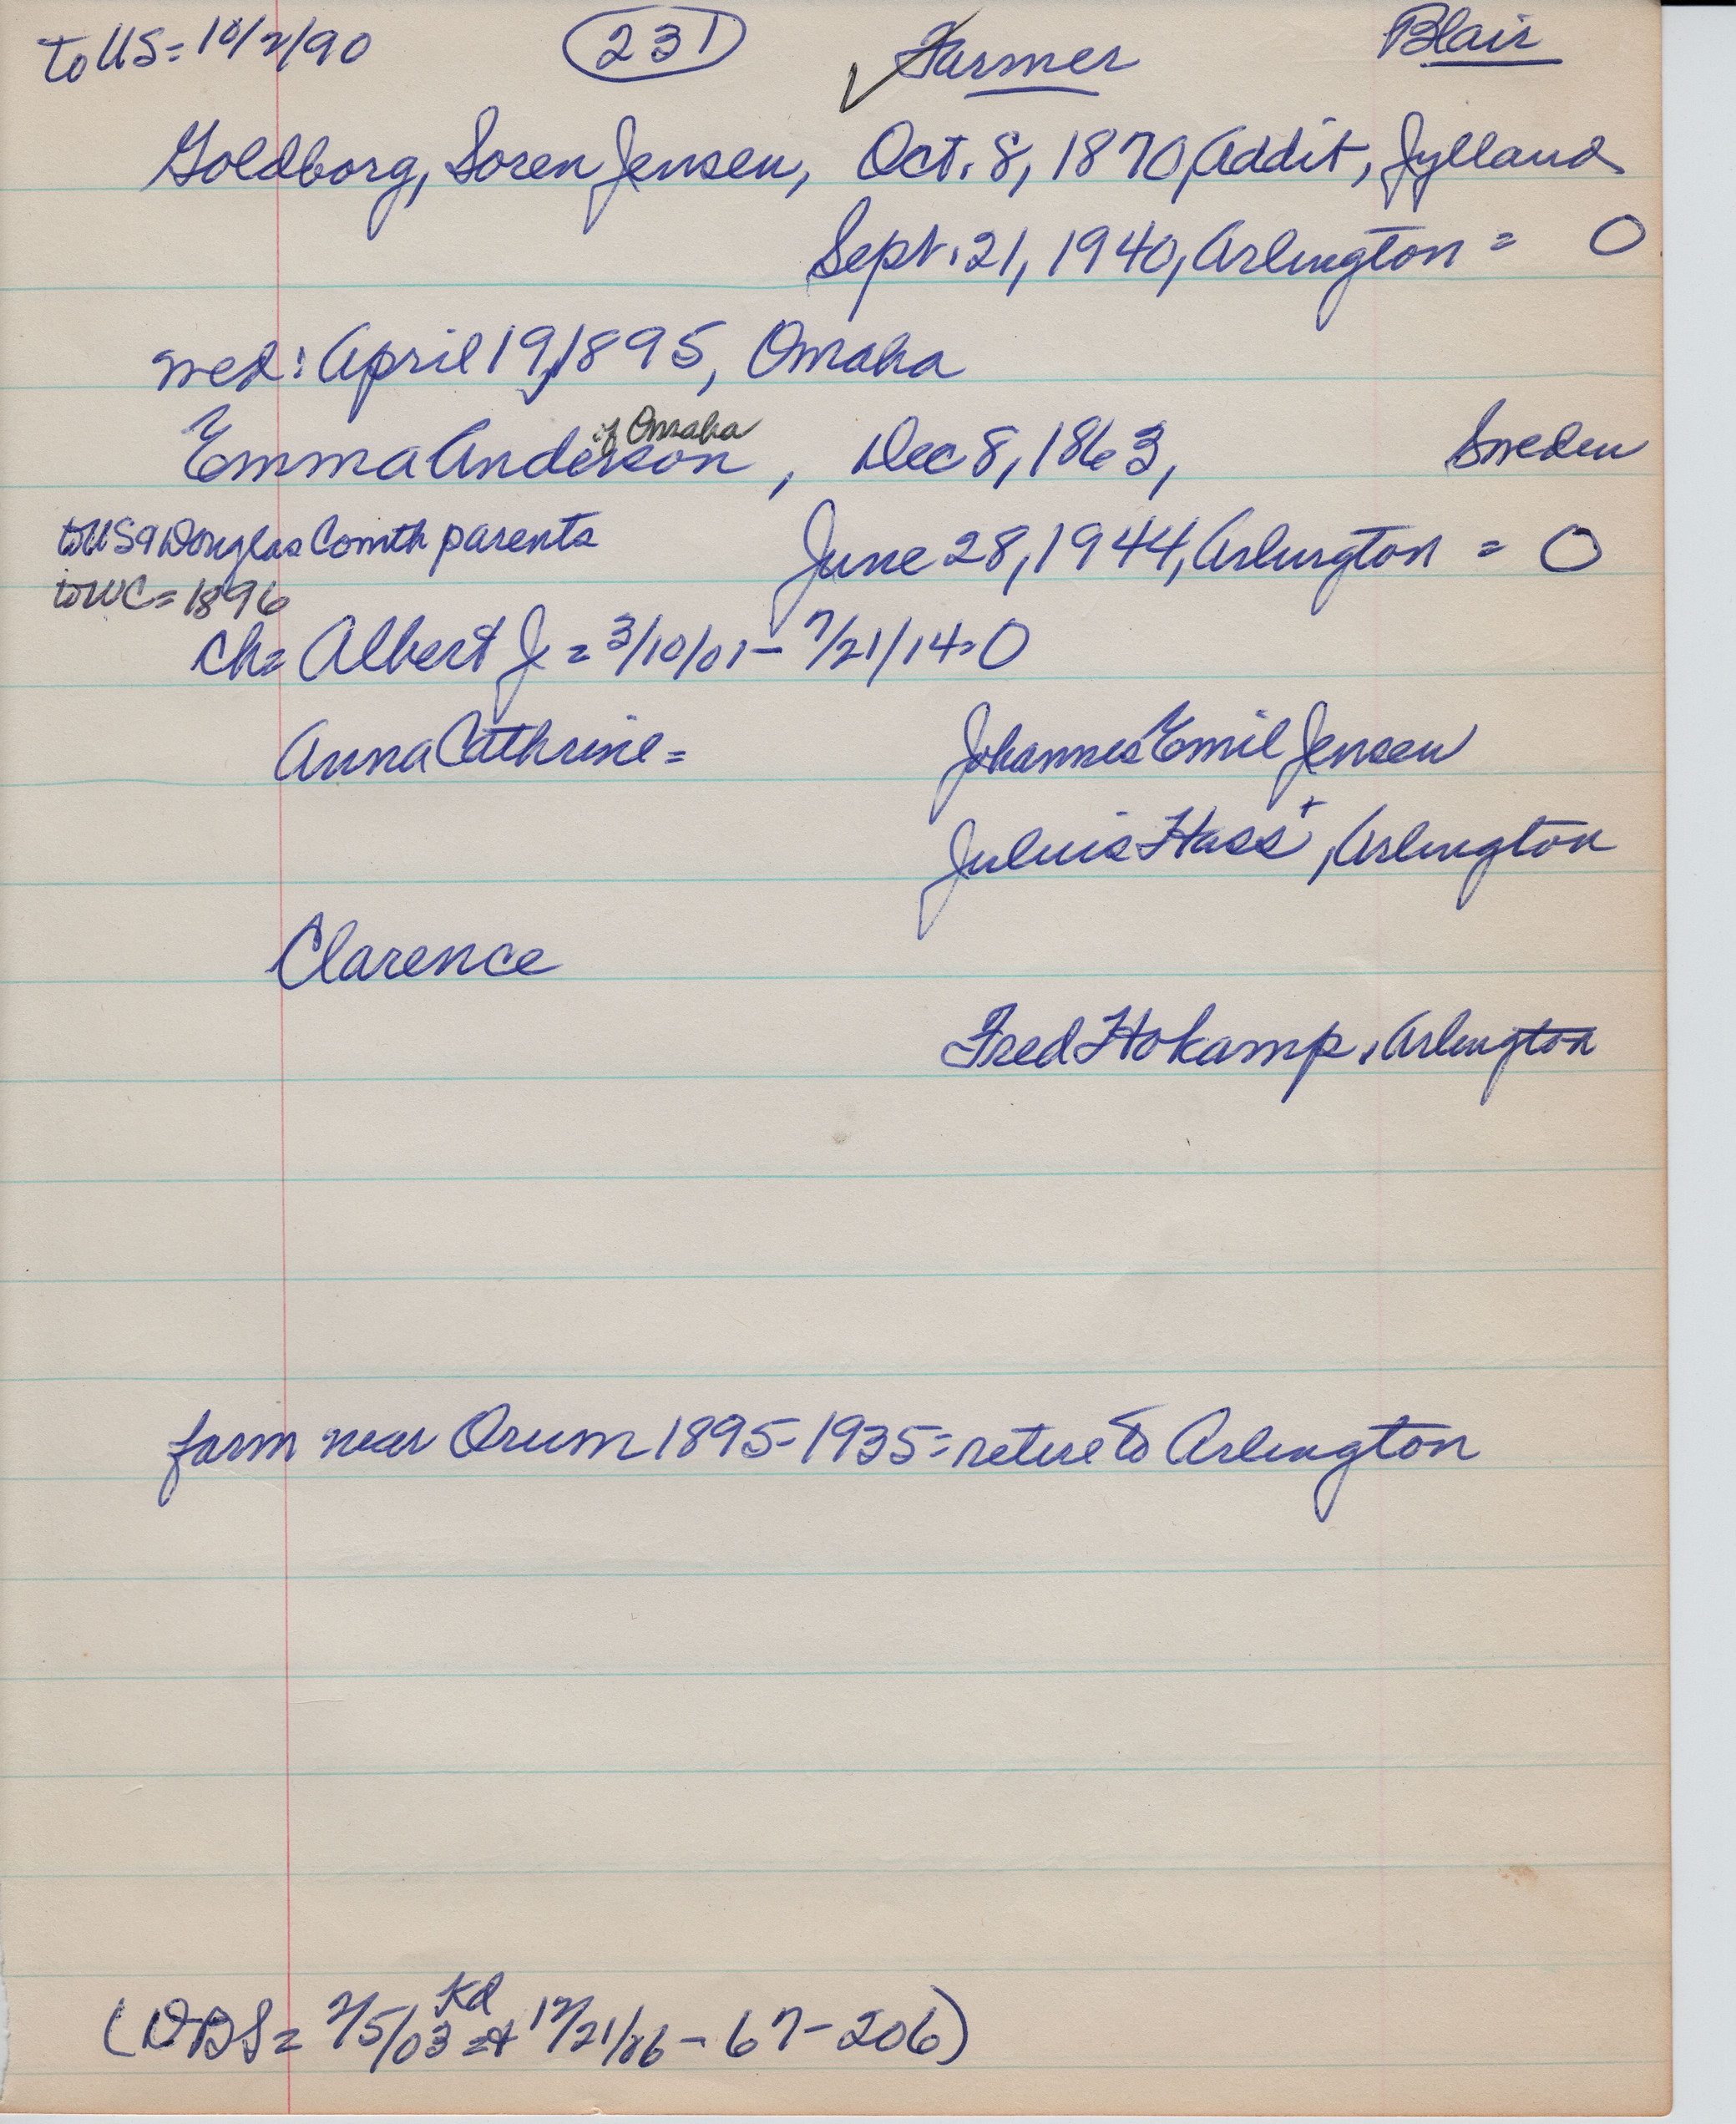 to US = 10/2/90 (231) Farmer Blair
Goldborg, Soren Jensen, Oct. 8, 1870, Addit, Jylland
Sept. 21, 1940, Arlington = O
med: April 19, 1895, Omaha
of Omaha
Emma Anderson, Dec 8, 1863, Sweden
to US 9 Douglas Co with parents June 28, 1944, Arlington = O
to WC = 1896
ch = Albert J = 3/10/01 - 7/21/14 = O
Anna Cathrine = Johannes Emil Jensen
+
Julius Hass, Arlington
Clarence
Fred Hokamp, Arlington
farm near Orum 1895 - 1935 = retire to Arlington
Kd
(DBS = 2/5/03 = 12/21/86 - 67 - 206)